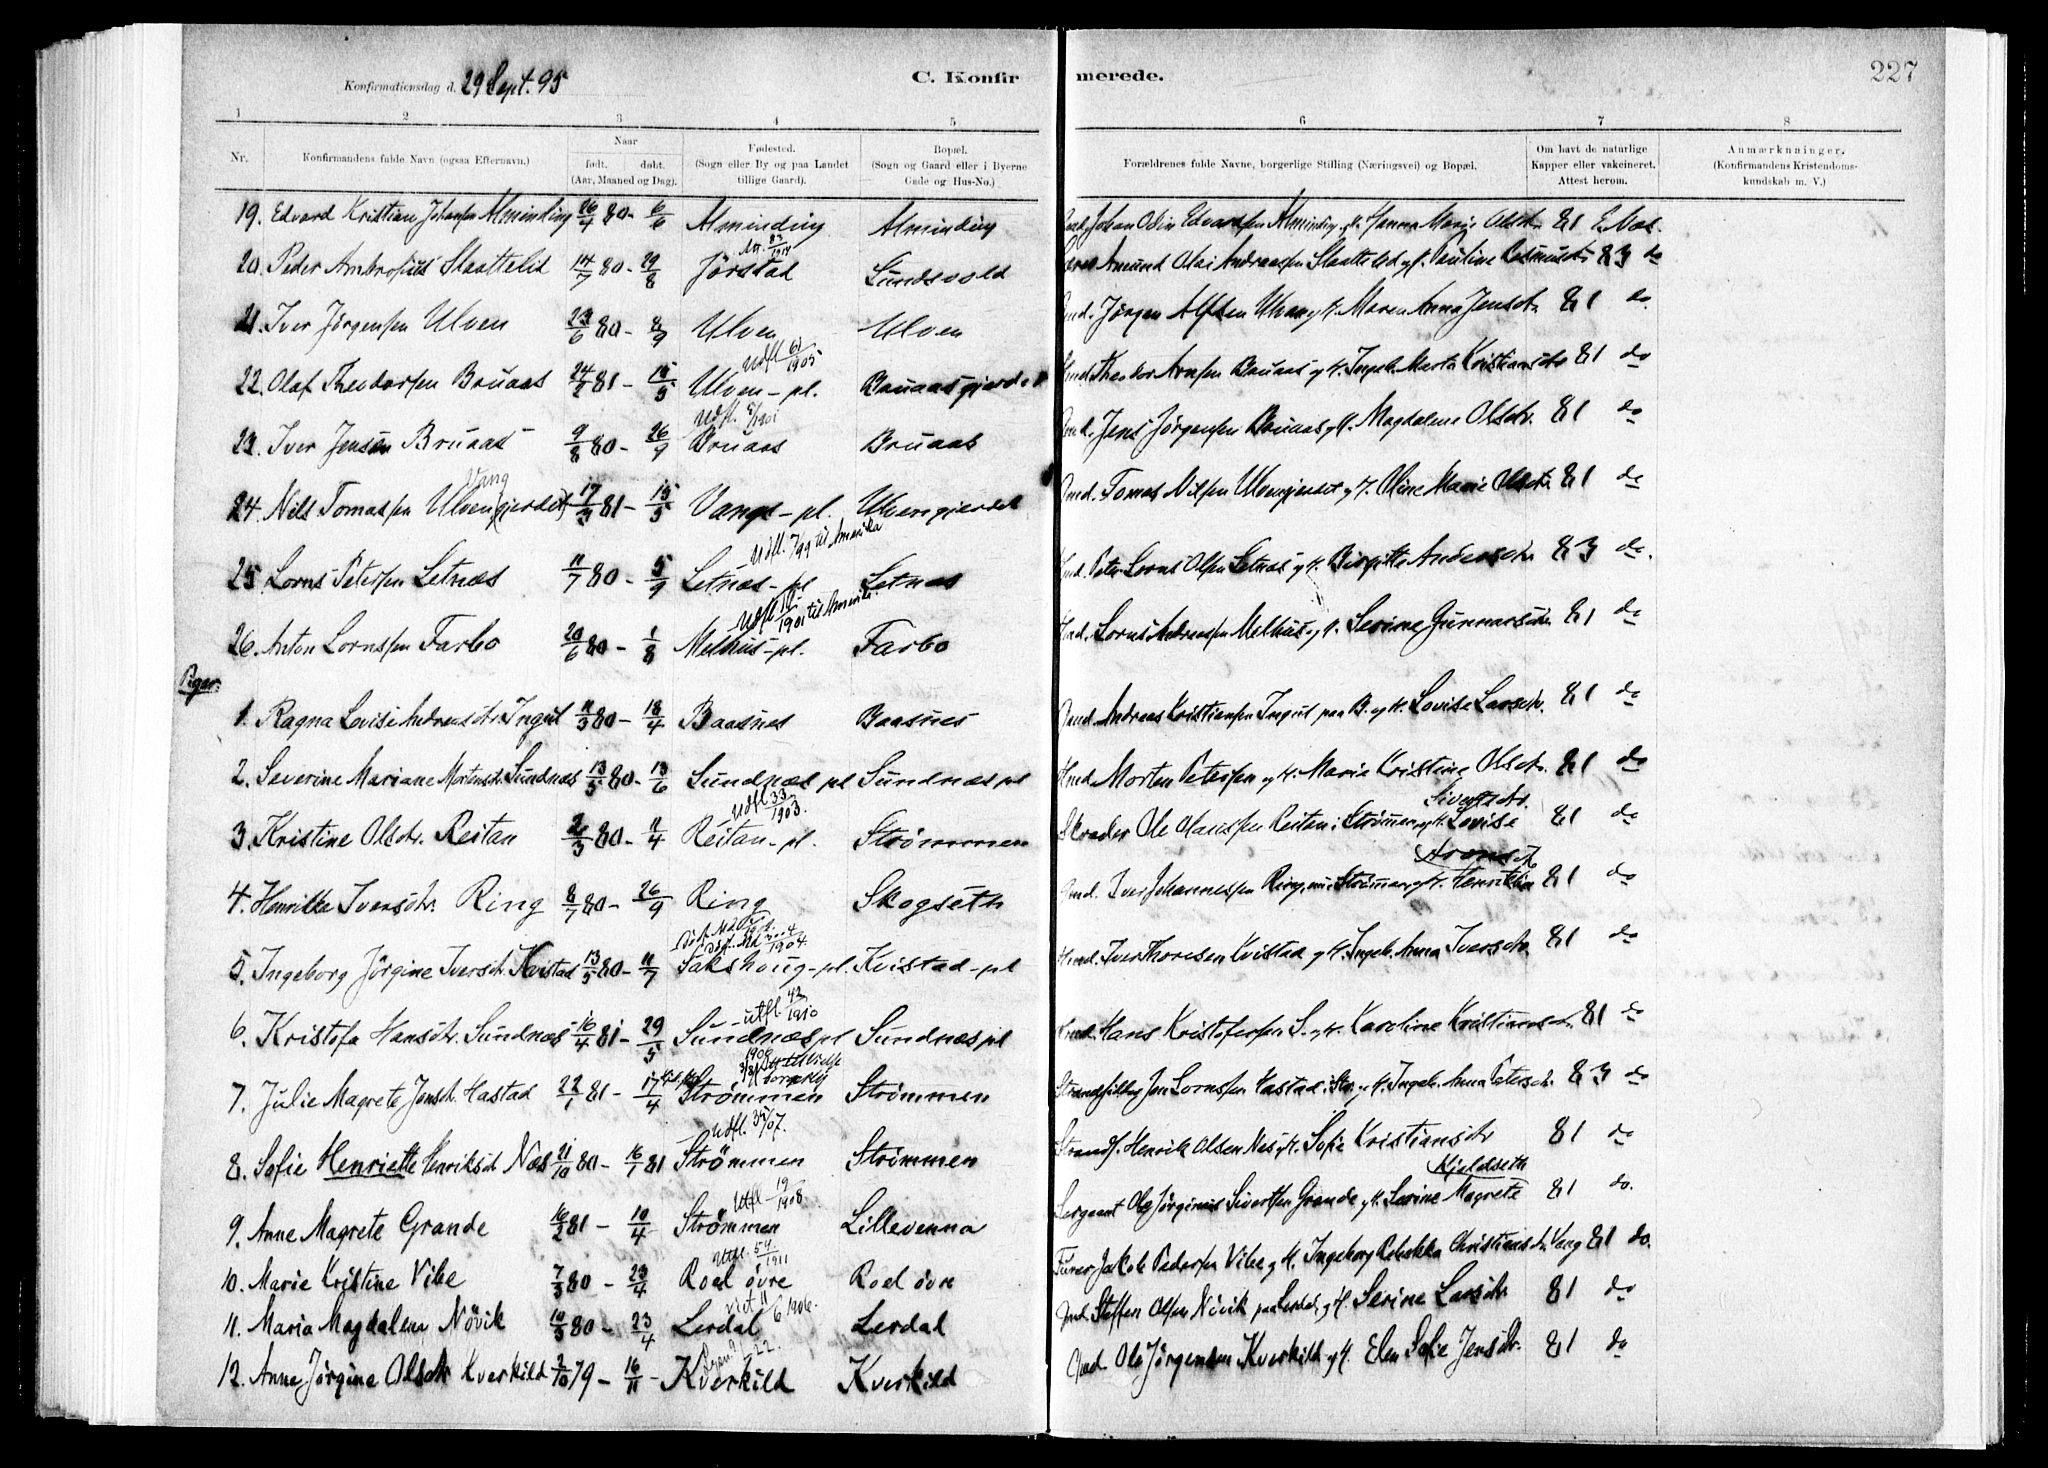 Konfirmationsdag d. 29 Sept. 95
C. Konfirmerede.
227
1 2 3 4 5 6 7 8
Nr.
Konfirmandens fulde Navn (ogsaa Efternavn.)
Naar
født. døbt.
(Aar, Maaned og Dag).
Fødested.
(Sogn eller By og paa Landet
tillige Gaard).
Bopæl.
(Sogn og Gaard eller i Byerne
Gade og Hus-No.)
Forældrenes fulde Navne, borgerlige Stilling (Næringsvei) og Bopæl.
Om havt de naturlige
Kapper eller vakcineret.
Attest herom.
Anmærkninger.
(Konfirmandens Kristendoms-
kundskab m. V.)
19. Edvard Kristian Johansen Alminding 26/4 80 - 6/6 Alminding Alminding Johan Odin Edvardsen Alminding og H. Hanna Marie Olsdtr. 81
An. 83/1914
20. Peder Ambrosius Slaattelid 14/7 80 - 29/8 Jørstad Sundsvold Amund Olai Andreassen Slaattelid og H. Pauline Rasmusdtr. 83 do
21. Iver Jørgensen Ulven 23/6 80 - 8/9 Ulven Ulven Gmd. Jørgen Alfsen Ulven og H. Maren Anna Jensdtr. 81 do.
Udfl. 61/1905
22. Olaf Theodorsen Bruaas 24/2 81 - 15/5 Ulven - pl. Bruaasgjerdet Hmd. Theodor Arnsen Bruaas og H. Ingeb. Marta Kristiansdtr 81 do
Udfl. 5/1901
23. Iver Jensen Bruaas 9/8 80 - 26/9 Bruaas Bruaas Gmd. Jens Jørgensen Bruaas og H. Magdalene Olsdtr. 81 do
Vang
24. Nils Tomassen Ulven(gjerdet) 17/3 81 - 15/5 Vangs - pl. Ulvengjerdet Hmd. Tomas Nilsen Ulvengjerdet og H. Oline Marie Olsdtr. 81 do
Udfl. 7/99 til Amerika
25 Lorns Petersen Letnæs 11/7 80 - 5/9 Letnæs - pl Letnæs Hmd. Peter Lorns Olsen Letnæs og H. Birgitte Andersdtr. 83 do.
Udfl. 1901 til Amerika.
26. Anton Lornssen Farbo 20/6 80 - 1/8 Melhus - pl. Farbo Hmd. Lorns Andreassen Melhus og H. Serine Gunnarsdtr. 81 do
Piger.
1. Ragna Lovise Andreasdtr. Ingul 11/3 80 - 18/4 Baasnes Baasnes Gmd. Andreas Kristiansen Ingul paa B. og H. Lovise Larsdtr. 81 do
2. Severine Mariane Mortensdtr. Sundnæs 13/5 80 - 13/6 Sundnæs pl Sundnæs pl Hmd. Morten Petersen og H. Marie Kristine Olsdtr. 81 do
Udfl. 33/1903. Sivertsdtr.
3. Kristine Olsdtr. Reitan 2/3 80 - 11/4 Reitan - pl. Strømmen Skræder Ole Olaussen Reitan i Strømmen og H. Lovise 81 do
Aronsdtr
4. Henrikke Iversdtr. Ring 8/7 80 - 26/9 Ring Skogseth Gmd. Iver Johannessen Ring nu i Strømmen og H. Henrikka 81 do
1904.
5. Ingeborg Jörgine Iversdtr. Kvistad 13/5 80 - 11/7 Sakshoug - pl. Kvistad - pl Hmd. Iver Thoresen Kvistad og H. Ingeb. Anna Iversdtr. 81 do
utfl. 43/1910
6. Kristofa Hansdtr. Sundnæs 16/4 81 - 29/5 Sundnæs pl Sundnæs pl Hmd. Hans Kristofersen S. og H. Karoline Kristiansdtr. 81 do
7. Julie Magrete Jensdt. Hastad 22/1 81 - 17/4 Strømmen Strømmen Strandsidder Jens Lornssen Hastad i Str. og H. Ingeb. Anna Petersdtr. 83 do
Udfl. 35/07.
8. Sofie Henriette Henriksdt Næs 21/10 80 - 16/1 81 Strömmen Strömmen Strands. Henrik Olsen Næs og H. Sofie Kristiansdtr 81 do
Utfl. 19/1908. Kjeldseth
9. Anne Magrete Grande 16/2 81 - 10/4 Strømmen Lillevenna Sergeant Ole Jørginus Sivertsen Grande og H. Serine Magrete 81 do.
Utfl. 54/1911
10. Marie Kristine Vibe 7/3 80 - 23/4 Roel övre Roel övre Furer Jakob Pedersen Vibe og H. Ingeborg Rebekka Christiansdtr. Vang 81 do.
viet 11/6 1906.
11. Maria Magdalena Növik 10/3 80 - 23/4 Lerdal Lerdal Gmd. Steffen Olsen Növik paa Lerdal og H. Serine Larsdtr. 81 do
12. Anne Jørgine Olsdtr Kverkild 2/10 79 - 16/11 - Kverkild Kverkild Gmd. Ole Jørgensen Kverkild og H. Elen Sofie Jensdtr. 81 do